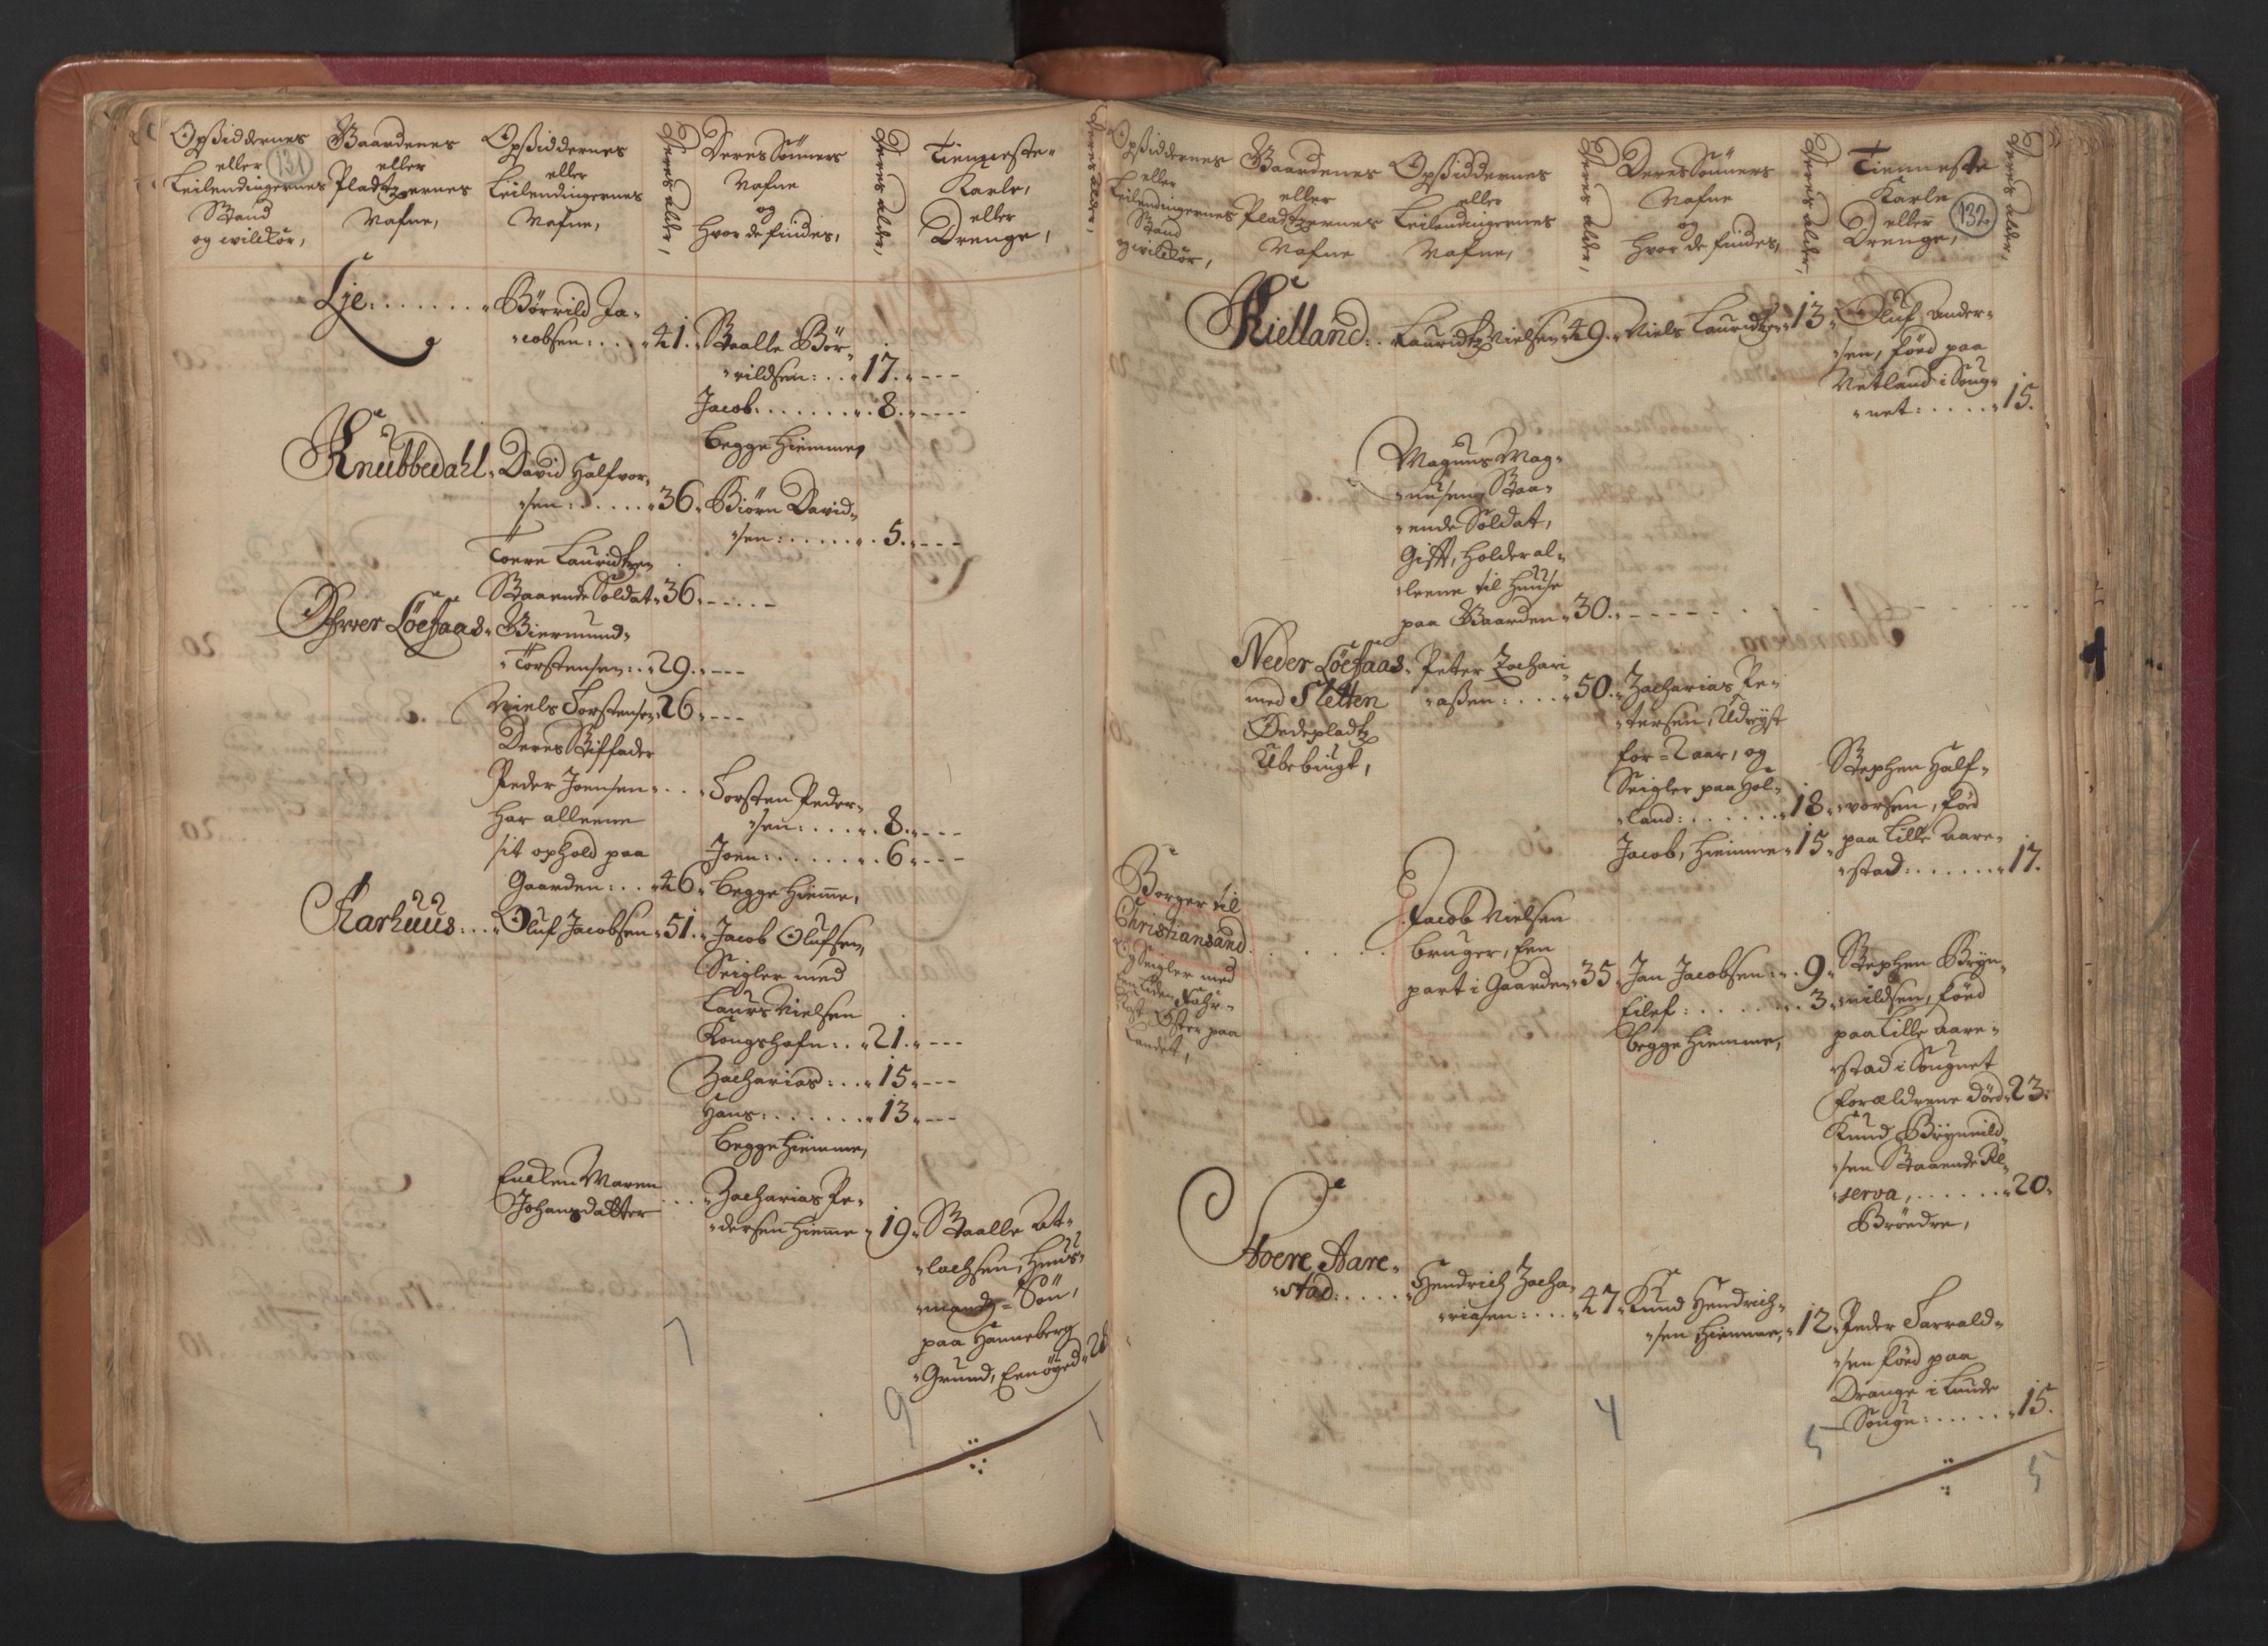 Opsiddernes
eller
Leilendingernes
Stand
og vilckor,
131
Gaardenes
eller
Pladtzernes
Nafne,
Opsiddernes
eller
Leilendingernes
Nafne,
Deres alder,
Deres Sönners
Nafne
og
hvor de findes,
Deres alder,
Tienneste-
Karle,
eller
Drenge,
Deres alder,
Lje . . . . . . .
Börrild Ja-
cobsen: . . . 41.
Staalle Bör-
rildsen: . . 17. - - -
Jacob. . . . . . . 8. - - - -
begge hiemme,
Knubbedahl.
David Halfvor-
sen: . . . . . 36.
Biörn David-
sen: . . . . . . 5. - - - -
Toere Lauridtzen
Staaende Soldat 36. - - - - -
Öfwer Löefaas.
Giermund
Torstensen: . . 29. - - -
Niels Torstensen 26. - - -
Deres Stiffader
Peder Joensen . . .
har alleene
sit ophold paa
Gaarden: . . 46.
Torsten Peder-
sen: . . . . . 8. - - - -
Joen: . . . . . . . 6. - - - -
begge hiemme,
Karhuus: . .
Oluf Jacobsen 51.
Jacob Olufsen,
Seigler med
Laurs Nielsen
Kongshafn: . . 21. - - -
Zacharias: . . . 15. - - -
Hans: . . . . . . . 13. - - -
begge hiemme,
Encken Maren
Johansdatter . . .
Zacharias Pe-
dersen hiemme 19.
Staalle At-
lachsen, huus-
mandz-Sön,
paa Hanneberg
Grund, Eenöyed 28
7
9
1
Opsiddernes
eller
Leilendingernes
Stand
og vilckor,
Gaardenes
eller
Pladtzernes
Nafne
Opsiddernes
eller
Leilendingernes
Nafne,
Deres alder,
Deres Sönners
Nafne
og
hvor de findes,
Deres alder,
Tienneste
Karle
eller
Drenge,
132
Deres alder,
Kielland: . .
Lauridtz Nielsen 49.
Niels Lauridtzen 13.
Oluf Ander-
sen, föed paa
Netland i Soug-
net: . . . . . 15.
Magnus Mag-
nusen, Staa-
ende Soldat,
Gift, holder al-
leene til huuse
paa Gaarden 30. - - - - -
Neder Löefaas.
med Sletten
Ödepladtz
Ubebügt,
Peter Zachari
assen: . . . . 50.
Zacharias Pe-
tersen, Udreyst
for 2 aar, og
Seigler paa Hol-
land: . . . . . . 18.
Jacob, hiemme 15.
Stephen Half-
vorsen, föed
paa Lille Aare-
stad: . . . . . . 17.
Borger til
Christiansand
og Seigler med
Een liden Fahr-
kost Öster paa
Landet,
Jacob Nielsen
bruger, Een
part i Gaarden 35.
Jan Jacobsen: . . 9.
Eilef: . . . . . . . 3.
begge hiemme,
Stephen Bryn-
nildsen, föed
paa Lille Aare-
stad i Sougnet
forældrene döde 23.
Knud Brynnild-
sen Staaende Re-
serva, . . . . . . 20.
Brödre,
Stoere Aare-
stad: . . . . .
Hendrich Zacha-
riasen: . . . . 47.
Knud Hendrich-
sen hiemme, 12.
Peder Tarrald-
sen föed paa
Drange i Lunde
Sougn: . . . . . 15.
4
5
5